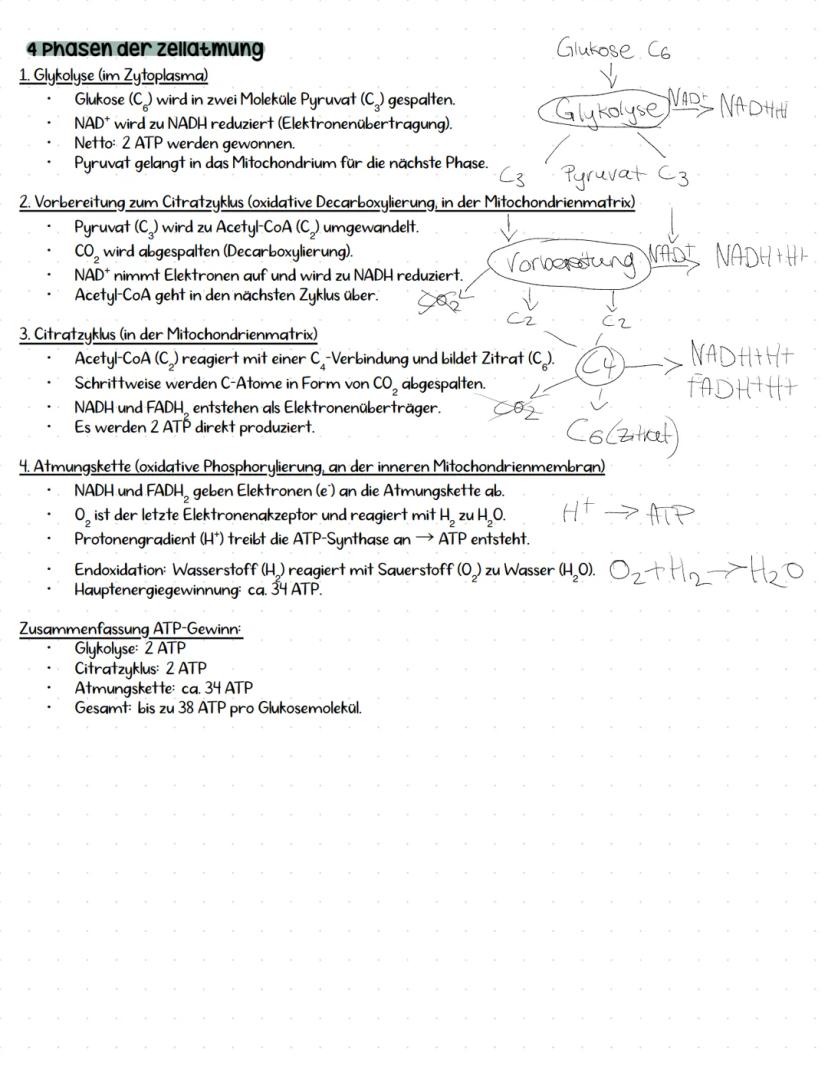 4 Phasen der Zellatmung
Glukose C6
1. Glykolyse (im Zytoplasma)
· Glukose (C₆) wird in zwei Moleküle Pyruvat (C₃) gespalten.
Glykolyse NAD+ NADHH
· NAD⁺ wird zu NADH reduziert (Elektronenübertragung).
· Netto: 2 ATP werden gewonnen.
· Pyruvat gelangt in das Mitochondrium für die nächste Phase.
C3 Pyruvat C3
2. Vorbereitung zum Citratzyklus (oxidative Decarboxylierung, in der Mitochondrienmatrix)
· Pyruvat (C₃) wird zu Acetyl-CoA (C₂) umgewandelt.
· CO₂ wird abgespalten (Decarboxylierung).
Vorbereitung NAD+ NADH+H+
· NAD⁺ nimmt Elektronen auf und wird zu NADH reduziert.
· Acetyl-CoA geht in den nächsten Zyklus über.
CO2
C2 C2
3. Citratzyklus (in der Mitochondrienmatrix)
· Acetyl-CoA (C₂) reagiert mit einer C₄-Verbindung und bildet Zitrat (C₆).
C4 → NADH+H+
FADH+H+
· Schrittweise werden C-Atome in Form von CO₂ abgespalten.
· NADH und FADH₂ entstehen als Elektronenüberträger.
CO2
· Es werden 2 ATP direkt produziert.
C6 (Zitrat)
4. Atmungskette (oxidative Phosphorylierung, an der inneren Mitochondrienmembran)
· NADH und FADH₂ geben Elektronen (e⁻) an die Atmungskette ab.
· O₂ ist der letzte Elektronenakzeptor und reagiert mit H₂ zu H₂O.
H+ → ATP
· Protonengradient (H⁺) treibt die ATP-Synthase an → ATP entsteht.
· Endoxidation: Wasserstoff (H₂) reagiert mit Sauerstoff (O₂) zu Wasser (H₂O).
O2+H2→H2O
· Hauptenergiegewinnung: ca. 34 ATP.
Zusammenfassung ATP-Gewinn:
· Glykolyse: 2 ATP
· Citratzyklus: 2 ATP
· Atmungskette: ca. 34 ATP
· Gesamt: bis zu 38 ATP pro Glukosemolekül.